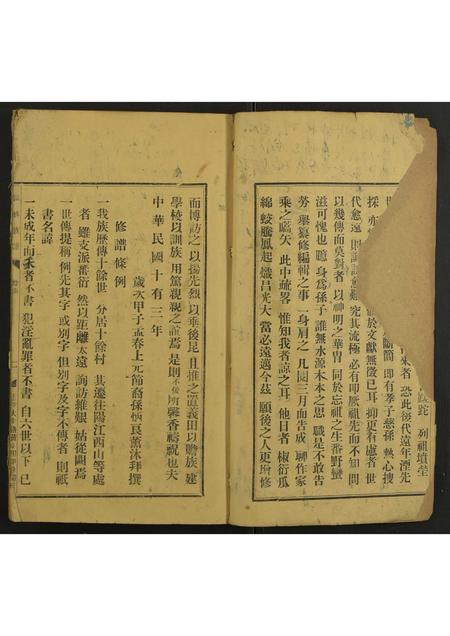 跋跎 列祖墳塋
者來 恐此後代遠年湮先
世
斷簡 即有孝子慈孫 熱心搜
採 亦 於文獻無徵已耳 抑更有慮者 世
代愈遠 則 究其流極 必有問厥祖先而不知 問
以幾傳而莫對者 以神明之華胄 同於忘祖之生番野蠻
滋可愧也 臆 身爲孫子 誰無水源木本之思 職是不敢告
勞 舉纂修編輯之事 一身肩之 凡閱三月而告成 聊作家
乘之嚆矢 此中疏畧 惟知我者諒之耳 他日者 椒衍瓜
綿 蛟騰鳳起 熾昌光大 當必遠邁今茲 願後之人更增修
而博訪之 以揚先烈 以垂後昆 且推之置義田以贍族 建
學校以訓族 用篤親親之誼焉 是則不後所馨香禱祝也夫
中華民國十有三年
歲次甲子孟春上元節裔孫炳良薰沐拜撰
修譜條例
一我族歷傳十餘世 分居十餘村 其遷往陽江西山等處
者 雖支派蕃衍 然以距離太遠 詢訪維艱 姑從闕焉
一世傳提稱 例先其字 或別字 但別字及字不傳者 則祇
書名諱
一未成年而夭者不書 犯淫亂罪者不書 自六世以下 已